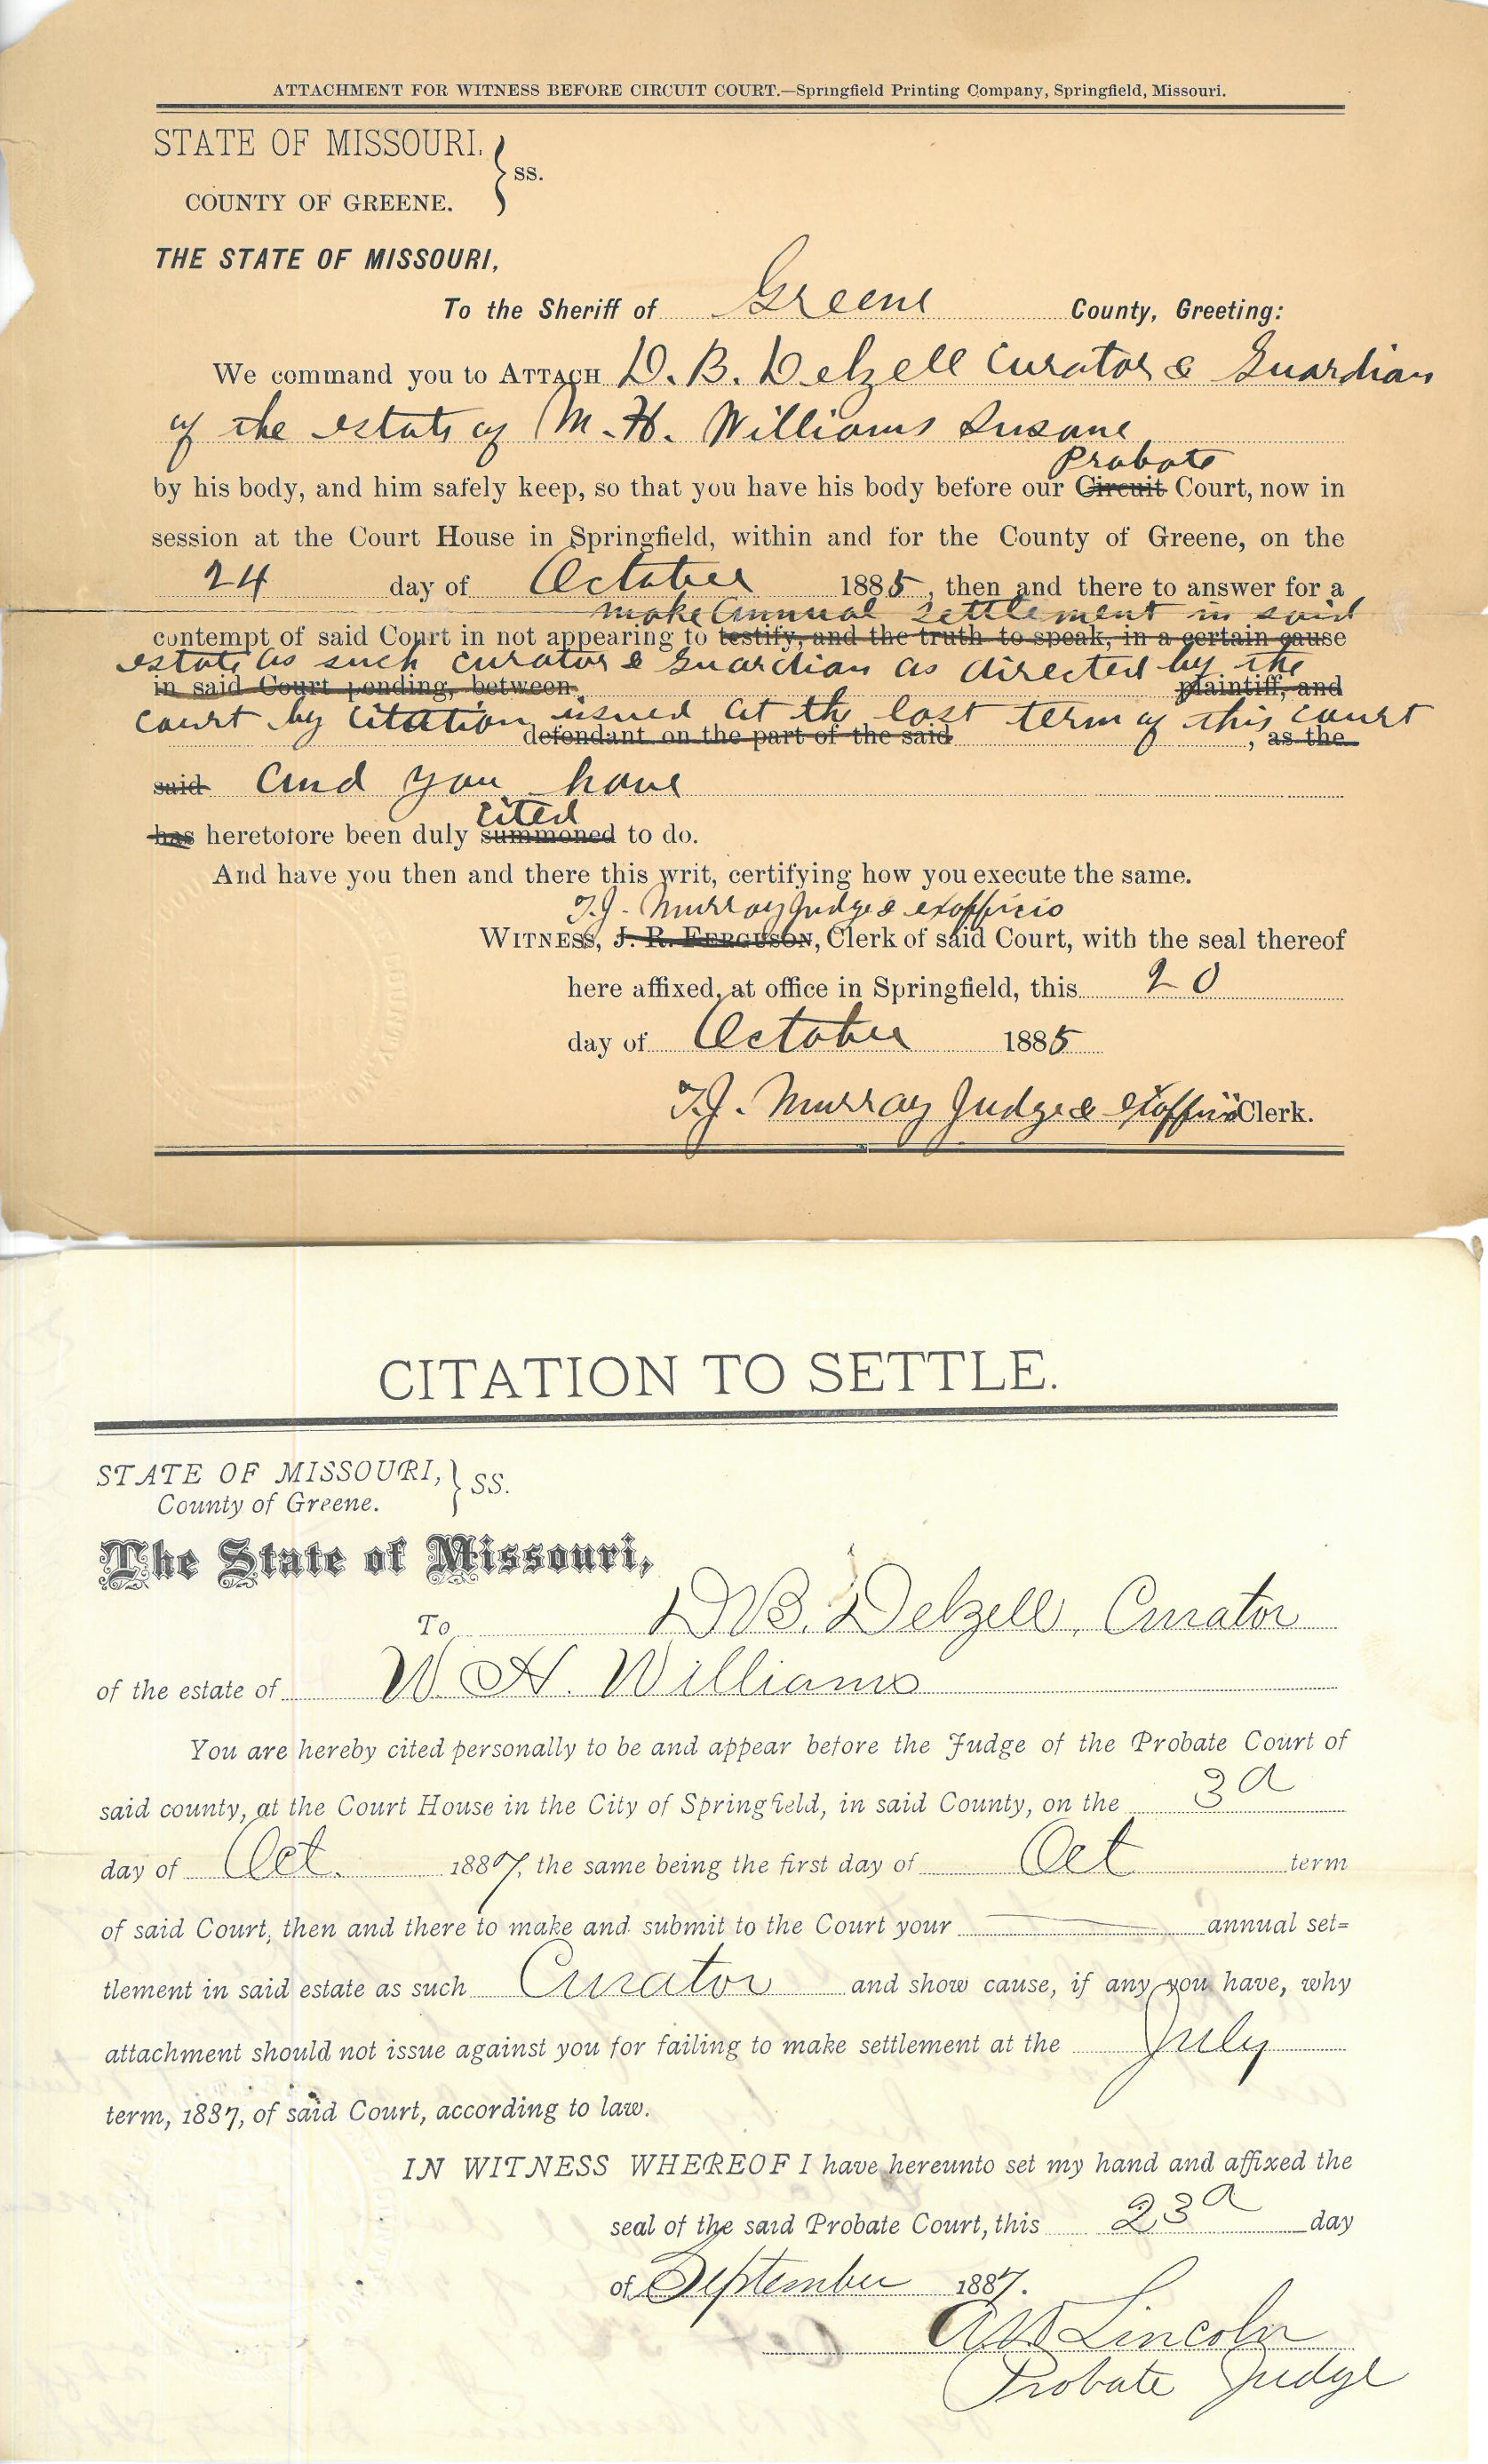 ATTACHMENT FOR WITNESS BEFORE CIRCUIT COURT.—Springfield Printing Company, Springfield, Missouri.
STATE OF MISSOURI, } ss.
COUNTY OF GREENE.
THE STATE OF MISSOURI,
To the Sheriff of Greene County, Greeting:
We command you to ATTACH D. B. Delzell Curator & Guardian
of the estate of M. H. Williams Insane
Probate
by his body, and him safely keep, so that you have his body before our Circuit Court, now in
session at the Court House in Springfield, within and for the County of Greene, on the
24 day of October 1885, then and there to answer for a
make Annual settlement in said
contempt of said Court in not appearing to testify, and the truth to speak, in a certain cause
estate as such curator & Guardian as directed by the
in said Court pending, between plaintiff, and
court by Citation issued at the last term of this court
defendant on the part of the said , as the
said and you have
cited
has heretofore been duly summoned to do.
And have you then and there this writ, certifying how you execute the same.
T.J. Murray Judge & exofficio
WITNESS, J. R. FERGUSON, Clerk of said Court, with the seal thereof
here affixed, at office in Springfield, this 20
day of October 1885
T.J. Murray Judge & Exofficio Clerk.
CITATION TO SETTLE.
STATE OF MISSOURI, } SS.
County of Greene.
The State of Missouri,
To D.B. Delzell, Curator
of the estate of W. H. Williams
You are hereby cited personally to be and appear before the Judge of the Probate Court of
said county, at the Court House in the City of Springfield, in said County, on the 3d
day of Oct. 1887, the same being the first day of Oct term
of said Court, then and there to make and submit to the Court your annual set=
tlement in said estate as such Curator and show cause, if any you have, why
attachment should not issue against you for failing to make settlement at the July
term, 1887, of said Court, according to law.
IN WITNESS WHEREOF I have hereunto set my hand and affixed the
seal of the said Probate Court, this 23d day
of September 1887.
Lincoln
Probate Judge